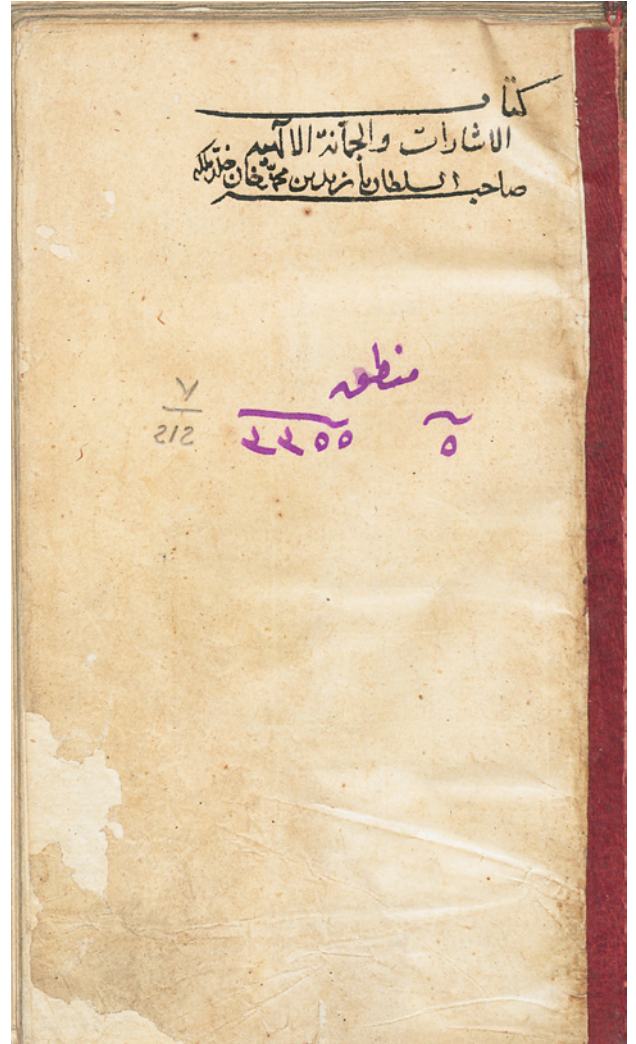 كتاب
الاشارات والجمانة الالهية
صاحبه السلطان بايزيد بن محمد خان خلد ملكه
منطق
٥
٣٣٥٥
٧
212